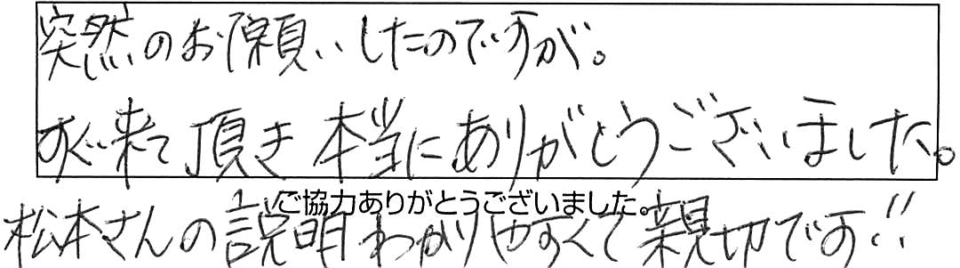 突然のお願いしたのですが。
すぐ来て頂き本当にありがとうございました。
ご協力ありがとうございました。
松本さんの説明わかりやすくて親切です!!